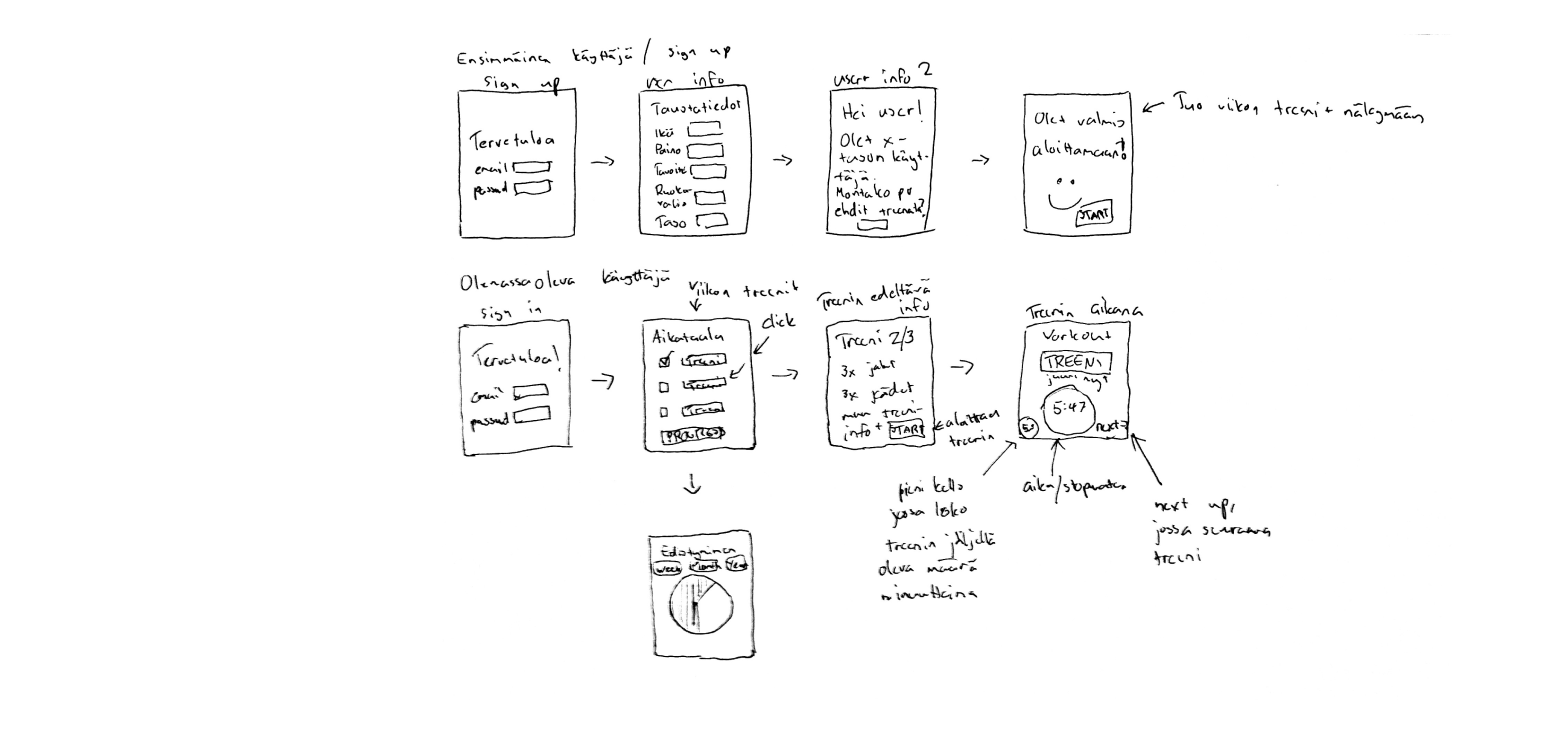 Ensimmäinen käyttäjä / sign up
sign up
Tervetuloa
email
passwd
user info
Taustatiedot
Ikä
Paino
Tavoite
Ruoka-
valio
Taso
user info 2
Hei user!
Olet x-
tason käyt-
täjä.
Montako pv
ehdit treenata?
Olet valmis
aloittamaan!
START
Tuo viikon treeni+ näkymään
Olemassaoleva käyttäjä
sign in
Tervetuloa!
email
passwd
Viikon treenit
click
Aikataulu
Treeni
Treeni
Treeni
PROGRESS
Treenin edeltävä
info
Treeni 2/3
3x jalat
3x kädet
muu treeni-
info+
START
aloittaa
treenin
Treenin aikana
Workout
TREENI
juuri nyt
5:47
next→
pieni kello
jossa koko
treenin jäljellä
oleva määrä
minuutteina
aika/stopwatch
next up,
jossa seuraava
treeni
Edistyminen
week
Month
Year